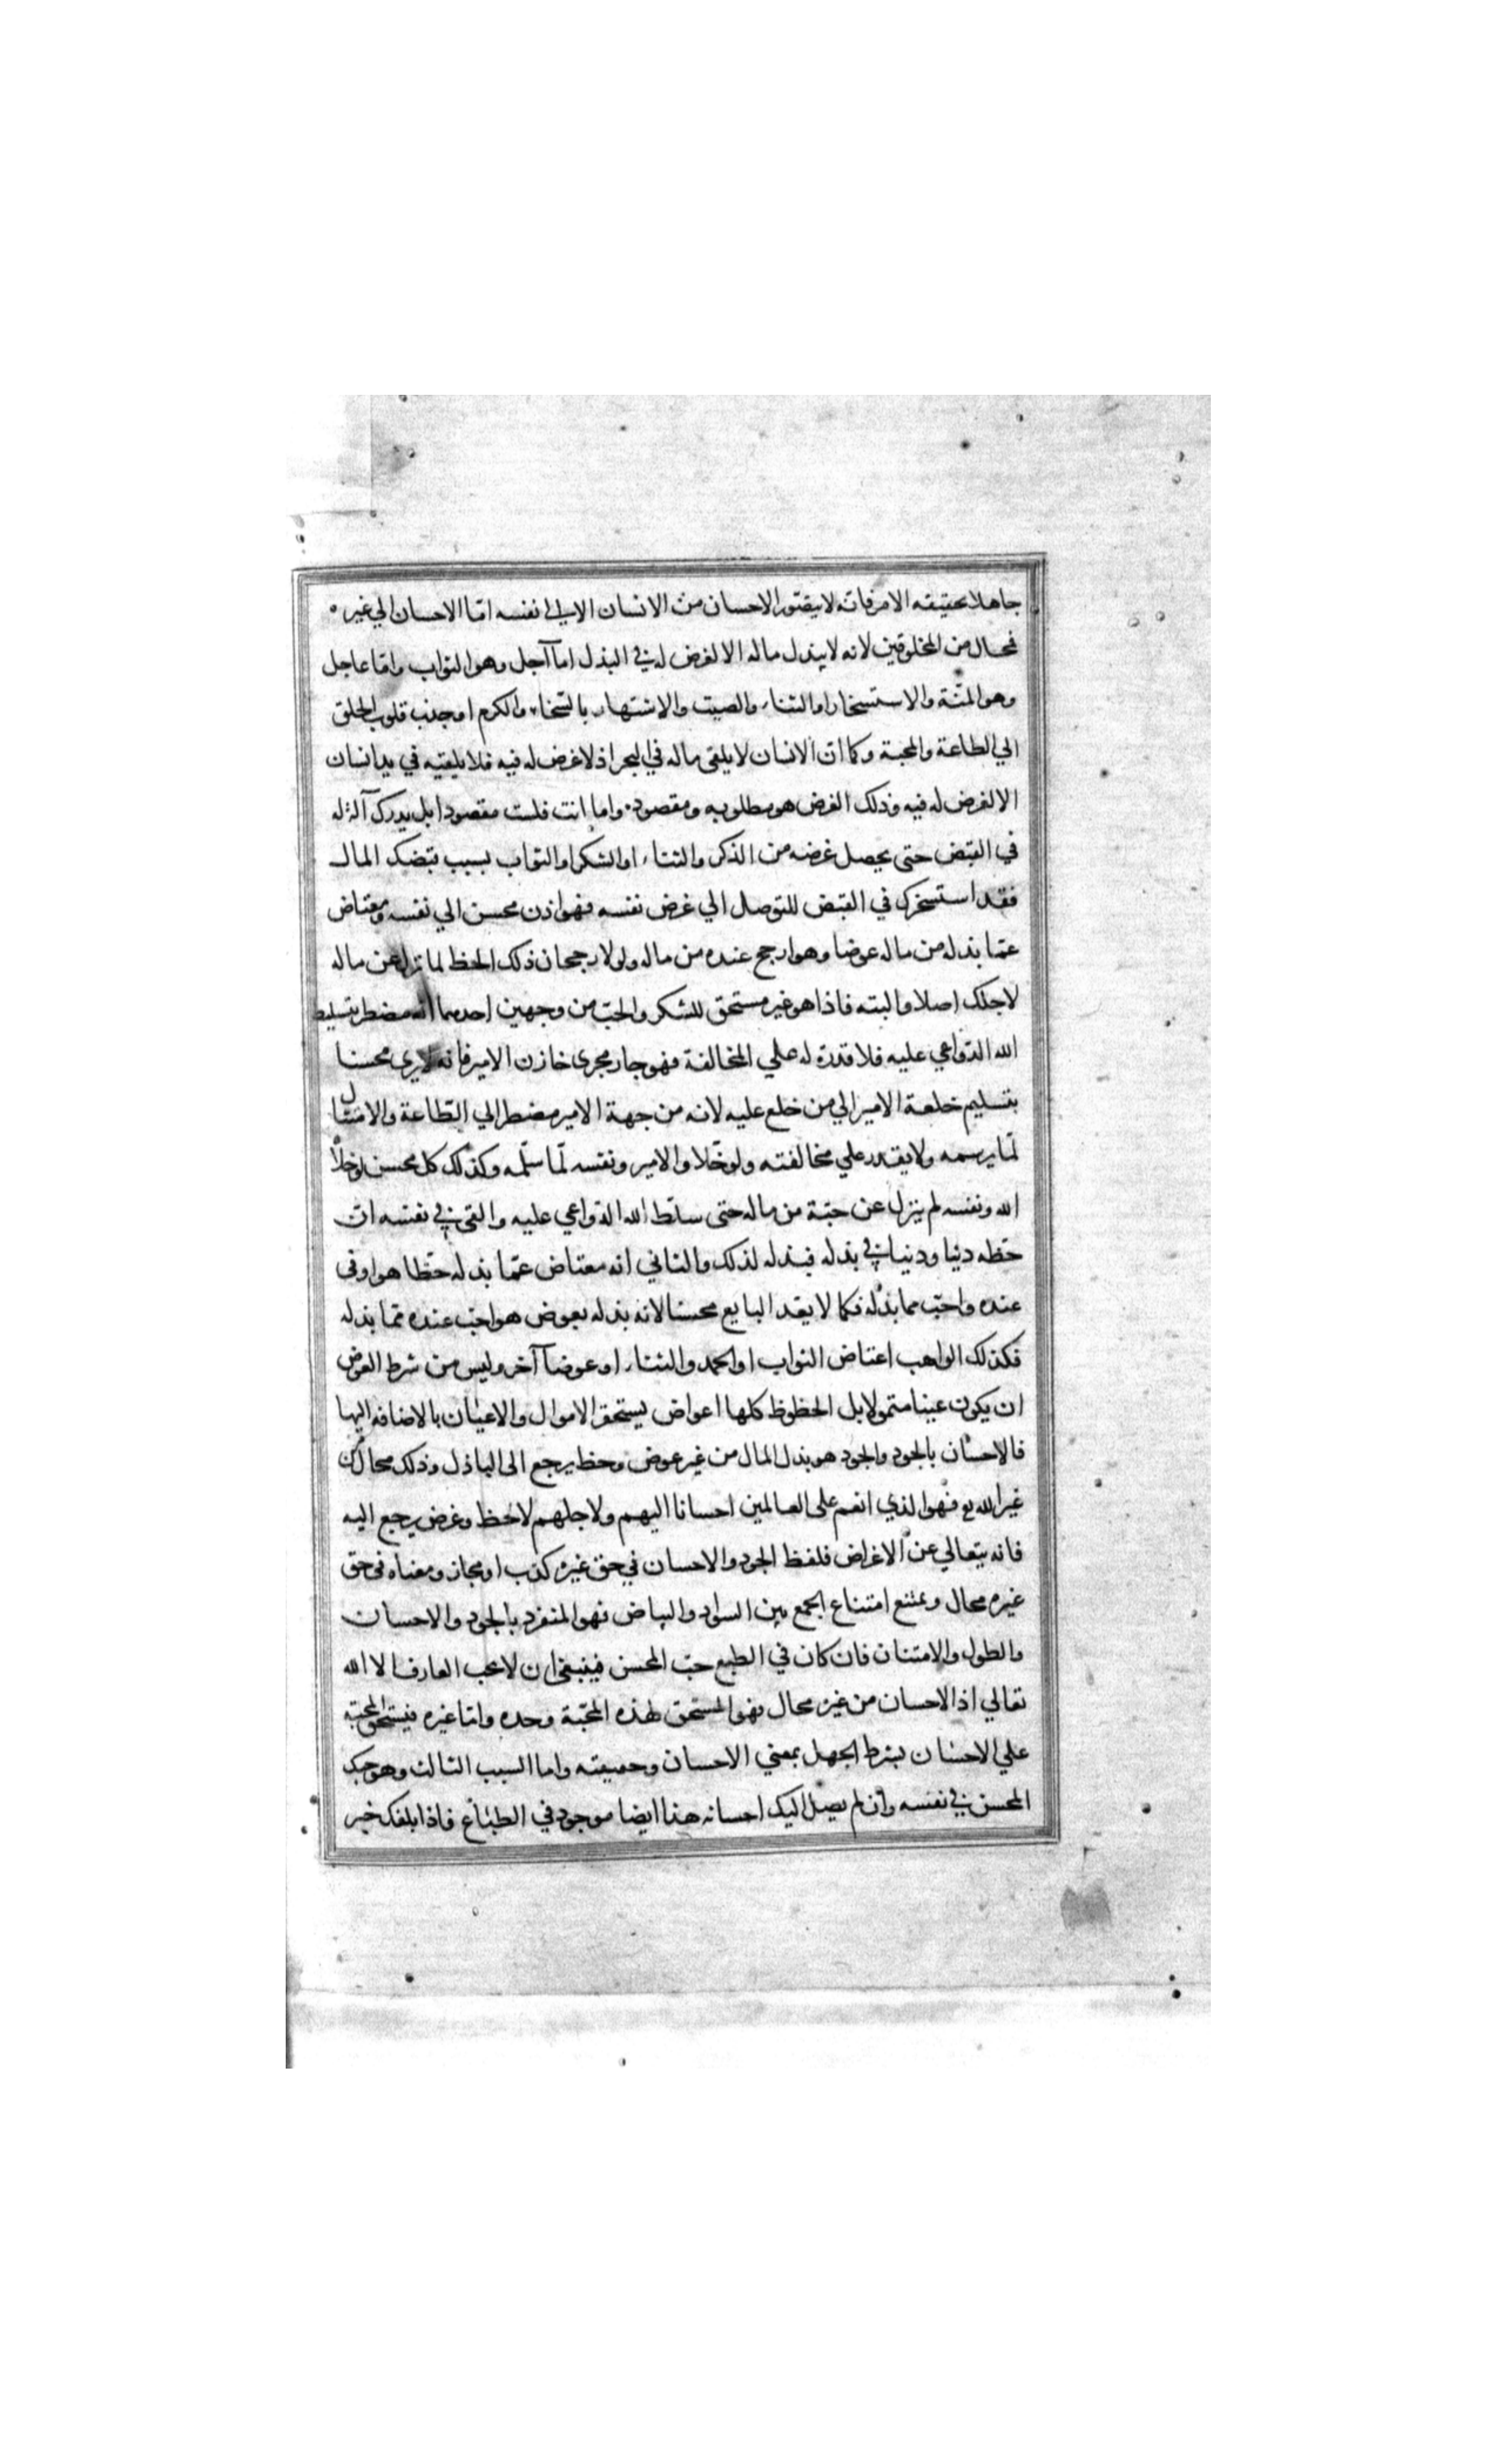 جاهلا بحقيقه الامر فانه لا يتصور الاحسان من الانسان الا الي نفسه امّا الاحسان الي غيره
فمحال من المخلوقين لانه لا يبذل ماله الا لغرض له في البذل اما آجل وهو الثواب وامّا عاجل
وهو المنّة والاستسخار او الثناء والصيت والاشتهار بالسّخاء والكرم او جذب قلوب الخلق
الي الطاعة والمحبة وكما انّ الانسان لا يلقى ماله في البحر اذ لا غرض له فيه فلا يلقيه في يد انسان
الا لغرض له فيه وذلك الغرض هو مطلوبه ومقصوده واما انت فلست مقصودا بل يدك آلة له
في القبض حتى يحصل غرضه من الذكر والثناء او الشكر او الثواب بسبب قبضك المال
فقد استسخرك في القبض للتوصل الي غرض نفسه فهو اذن محسن الي نفسه ومعتاض
عمّا بذله من ماله عوضا وهو ارجح عنده من ماله ولولا رجحان ذلك الحظ لما نزل عن ماله
لاجلك اصلا والبته فاذا هو غير مستحق للشكر والحبّ من وجهين احدهما انه مضطر بتسليط
الله الدّواعي عليه فلا قدرة له علي المخالفة فهو جار مجرى خازن الامير فانه لا يرى محسنا
بتسليم خلعة الامير الي من خلع عليه لانه من جهة الامير مضطر الي الطّاعة والامتثال
لما يرسمه ولا يقدر علي مخالفته ولو خلّاه الامير ونفسه لمّا سلّمه وكذلك كل محسن لو خلاه
الله ونفسه لم ينزل عن حبّة من ماله حتى سلّط الله الدّواعي عليه والقى في نفسه انّ
حظّه دينا ودنيا في بذله فبذله لذلك والثاني انه معتاض عمّا بذله حظّا هو اوفى
عنده واحبّ مما بذله فكما لا يعد البايع محسنا لانه بذله بعوض هو احبّ عنده ممّا بذله
فكذلك الواهب اعتاض الثواب او الحمد والثناء او عوضا آخر وليس من شرط العوض
ان يكون عينا متمولا بل الحظوظ كلها اعواض يستحقر الاموال والاعيان بالاضافه اليها
فالاحسان بالجود والجود هو بذل المال من غير عوض وحظ يرجع الى الباذل وذلك محال من
غير الله تع فهو الذي انعم على العالمين احسانا اليهم ولاجلهم لا لحظ وغرض يرجع اليه
فانه يتعالي عن الاغراض فلفظ الجود والاحسان في حق غيره كذب او مجاز ومعناه فى حق
غيره محال وممتنع امتناع الجمع بين السواد والبياض فهو المنفرد بالجود والاحسان
والطول والامتنان فان كان في الطبع حبّ المحسن فينبغى ان لا يحب العارف الا الله
تعالي اذ الاحسان من غيره محال فهو المستحق لهذه المحبّة وحده وامّا غيره فيستحق المحبّه
علي الاحسان بشرط الجهل بمعني الاحسان وحقيقته واما السبب الثالث وهو حبك
المحسن في نفسه وان لم يصل اليك احسانه هذا ايضا موجود في الطبائع فاذا بلغك خبر